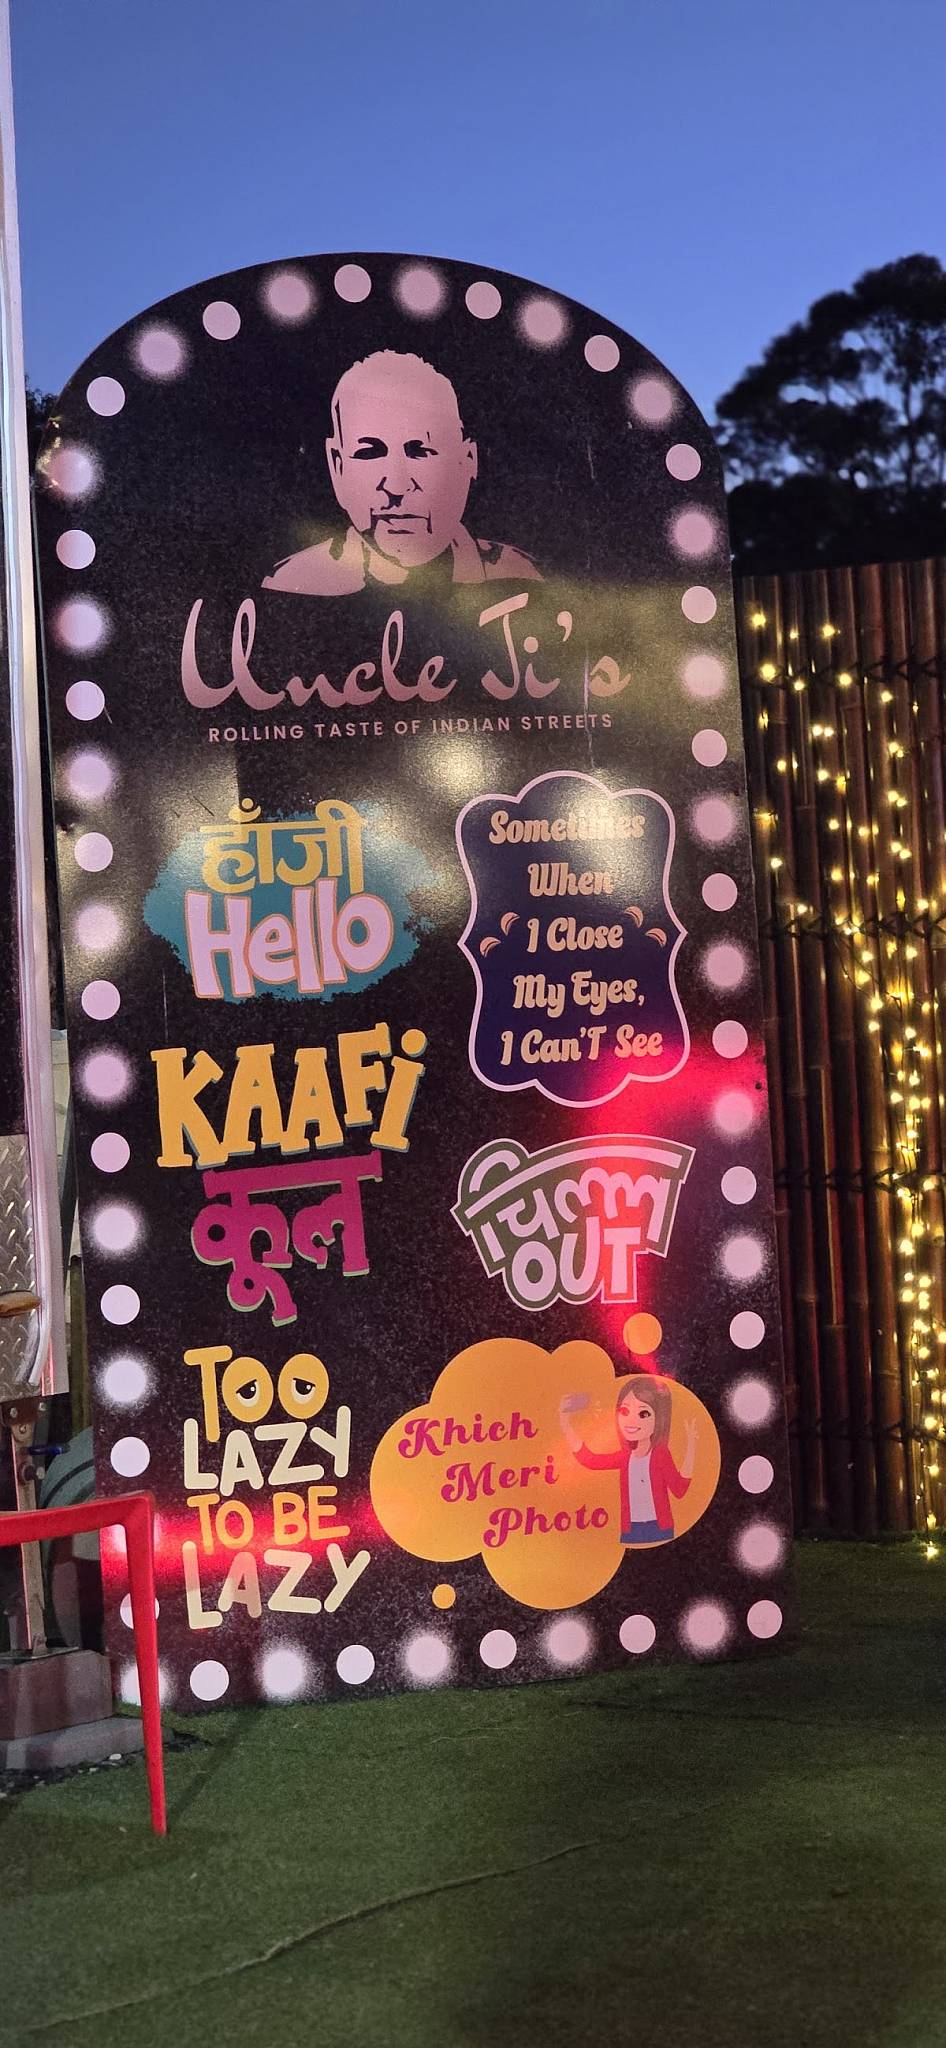 Uncle Ji's
ROLLING TASTE OF INDIAN STREETS
हाँजी
Hello
Sometimes
When
I Close
My Eyes,
I Can'T See
KAAFi
कूल
चिल्ल
OUT
TOO
LAZY
TO BE
LAZY
Khich
Meri
Photo